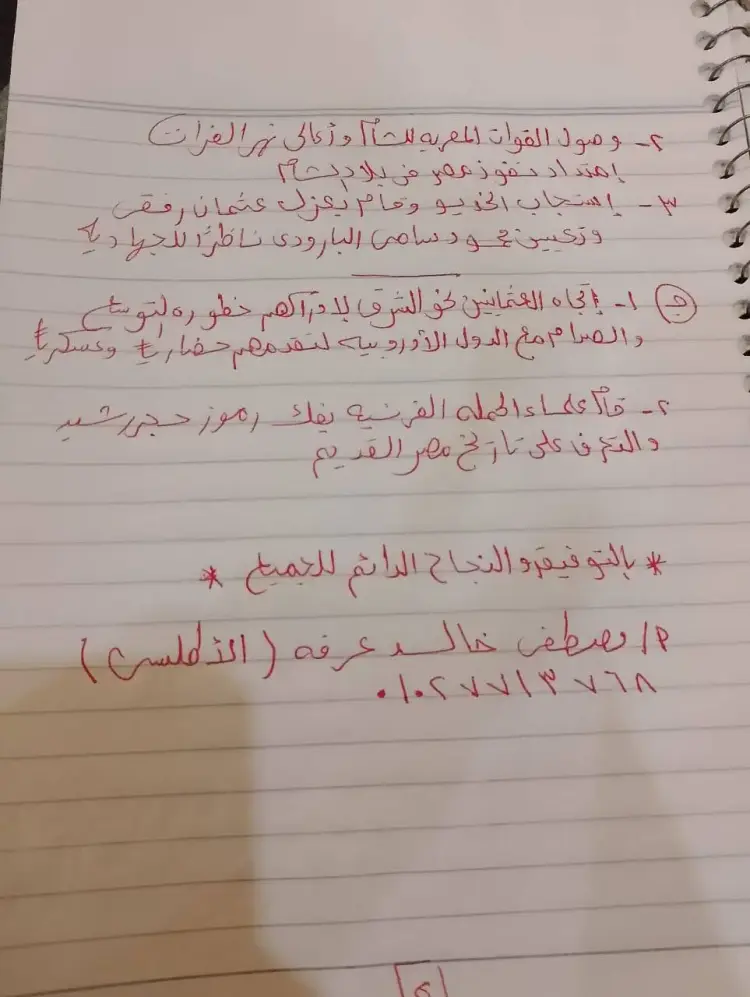 ٢- وصول القوات المصريه للشام وأعالى نهر الفرات
إمتداد نفوذ مصر فى بلاد الشام
٣- إستجاب الخديو وقام بعزل عثمان رفقى
وتعيين محمود سامى البارودى ناظرًا للجهاديه
(ج) ١- إتجاه العثمانيين نحو الشرق لادراكهم خطوره التوسع
والصدام مع الدول الأوروبيه لتقدمهم حضاريًا وعسكريًا
٢- قام علماء الحمله الفرنسيه بفك رموز حجر رشيد
والتعرف على تاريخ مصر القديم
* بالتوفيق والنجاح الدائم للجميع *
م/ مصطفى خالد عرفه (الأطلسى)
٠١٠٢٧٧١٣٧٦٨